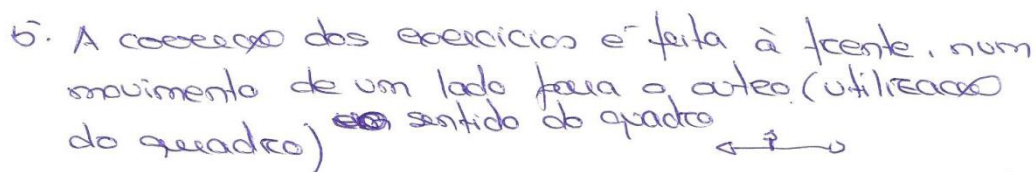 5. A correcção dos exercícios é feita à frente, num
movimento de um lado para o outro (utilização
do quadro) sentido do quadro